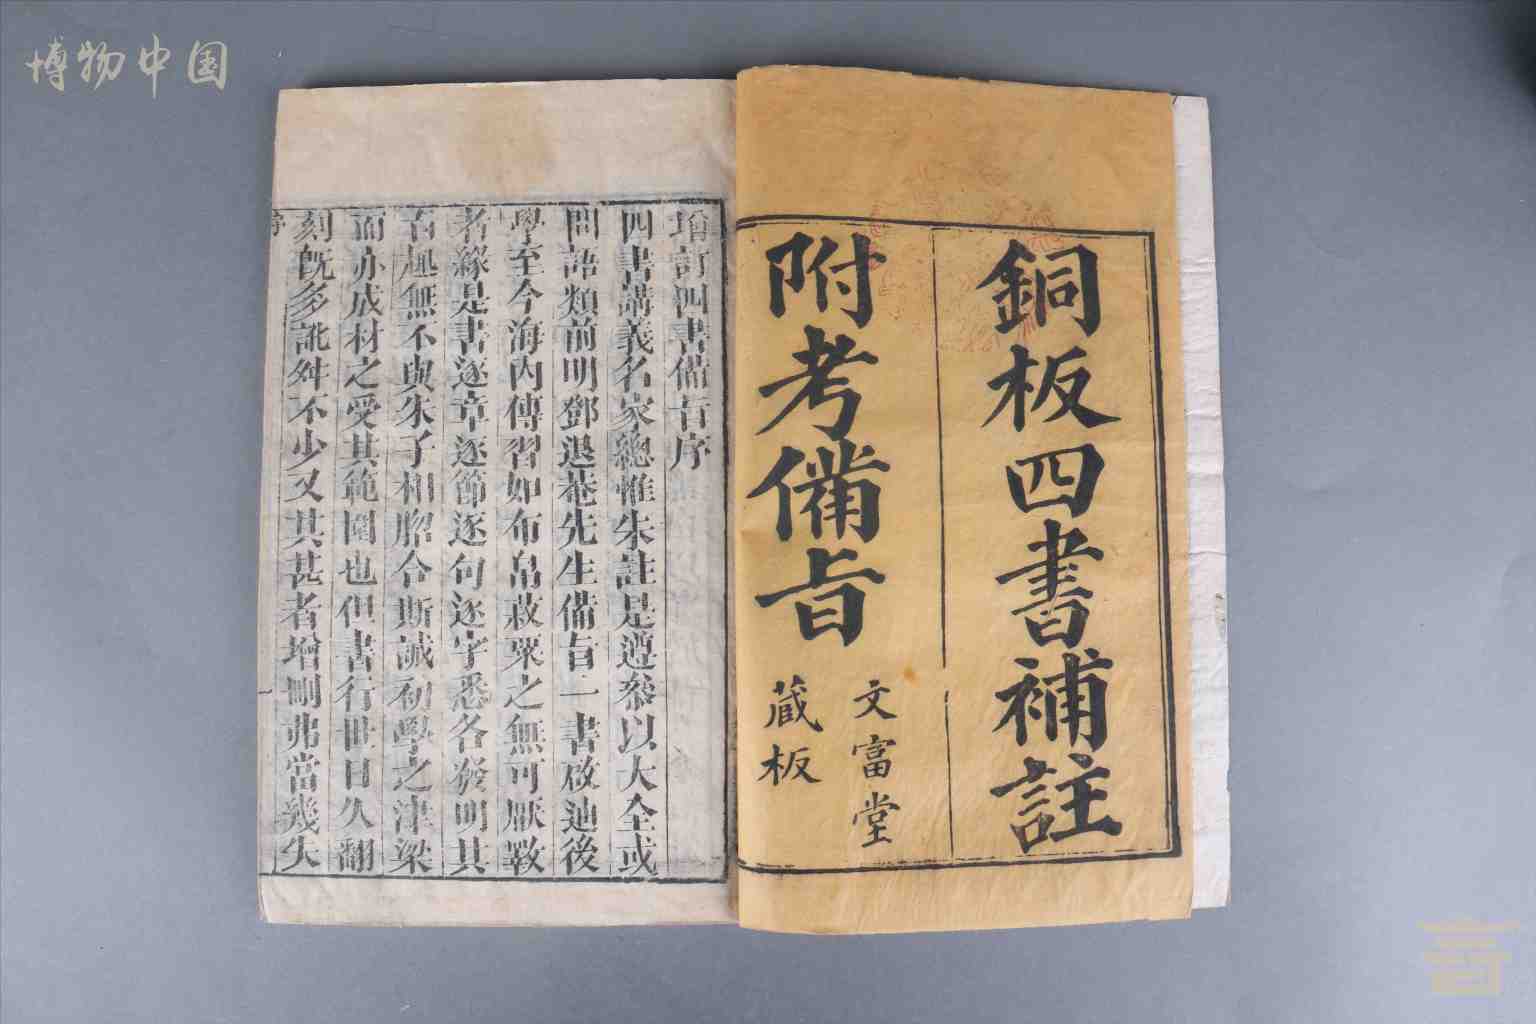 博物中国
銅板四書補註
附考備旨
文富堂
藏板
增訂四書備旨序
四書講義名家總惟朱註是遵叅以大全或
問語類前明鄧退菴先生備旨一書啟迪後
學至今海内傳習如布帛菽粟之無可厭斁
者緣是書逐章逐節逐句逐字悉各發明具
有起無不與朱子相脗合斯誠初學之津梁
而亦成材之受其範圍也但書行世日久翻
刻旣多訛舛不少又其甚者增刪弗當幾失